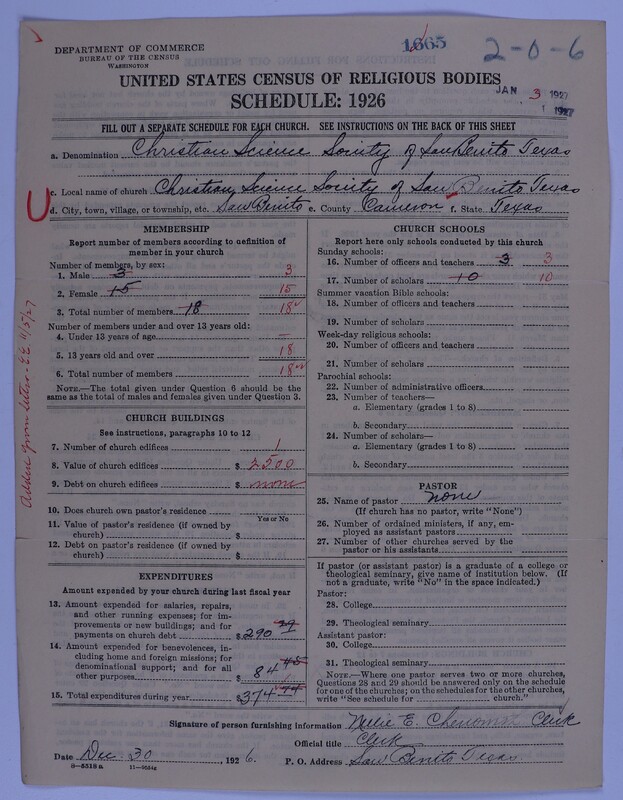 1665
2-0-6
DEPARTMENT OF COMMERCE
BUREAU OF THE CENSUS
WASHINGTON
UNITED STATES CENSUS OF RELIGIOUS BODIES
JAN 3 1927
1 1927
SCHEDULE: 1926
FILL OUT A SEPARATE SCHEDULE FOR EACH CHURCH. SEE INSTRUCTIONS ON THE BACK OF THIS SHEET
a. Denomination Christian Science Society of San Benito Texas
c. Local name of church Christian Science Society of San Benito Texas
d. City, town, village, or township, etc. San Benito e. County Cameron f. State Texas
Added from letter 11/5/27
MEMBERSHIP
Report number of members according to definition of
member in your church
Number of members, by sex:
1. Male 3 3
2. Female 15 15
3. Total number of members 18 18
Number of members under and over 13 years old:
4. Under 13 years of age —
5. 13 years old and over 18
6. Total number of members 18
NOTE.—The total given under Question 6 should be the
same as the total of males and females given under Question 3.
CHURCH BUILDINGS
See instructions, paragraphs 10 to 12
7. Number of church edifices 1
8. Value of church edifices $ 2500
9. Debt on church edifices $ none
10. Does church own pastor's residence
Yes or No
11. Value of pastor's residence (if owned by
church) $
12. Debt on pastor's residence (if owned by
church) $
EXPENDITURES
Amount expended by your church during last fiscal year
13. Amount expended for salaries, repairs,
and other running expenses; for im-
provements or new buildings; and for
payments on church debt $ 290
14. Amount expended for benevolences,
including home and foreign missions; for
denominational support; and for all
other purposes $ 84
15. Total expenditures during year $ 374
CHURCH SCHOOLS
Report here only schools conducted by this church
Sunday schools:
16. Number of officers and teachers 3 3
17. Number of scholars 10 10
Summer vacation Bible schools:
18. Number of officers and teachers
19. Number of scholars
Week-day religious schools:
20. Number of officers and teachers
21. Number of scholars
Parochial schools:
22. Number of administrative officers
23. Number of teachers—
a. Elementary (grades 1 to 8)
b. Secondary
24. Number of scholars—
a. Elementary (grades 1 to 8)
b. Secondary
PASTOR
25. Name of pastor none
(If church has no pastor, write "None")
26. Number of ordained ministers, if any, em-
ployed as assistant pastors
27. Number of other churches served by the
pastor or his assistants
If pastor (or assistant pastor) is a graduate of a college or
theological seminary, give name of institution below. (If
not a graduate, write "No" in the space indicated.)
Pastor:
28. College
29. Theological seminary
Assistant pastor:
30. College
31. Theological seminary
NOTE.—Where one pastor serves two or more churches,
Questions 28 and 29 should be answered only on the schedule
for one of the churches; on the schedules for the other churches,
write "See schedule for church."
Signature of person furnishing information Nellie E. Clerk
Official title Clerk
Date Dec. 30, 1926. P. O. Address San Benito Texas
8—5518 a 11—9554